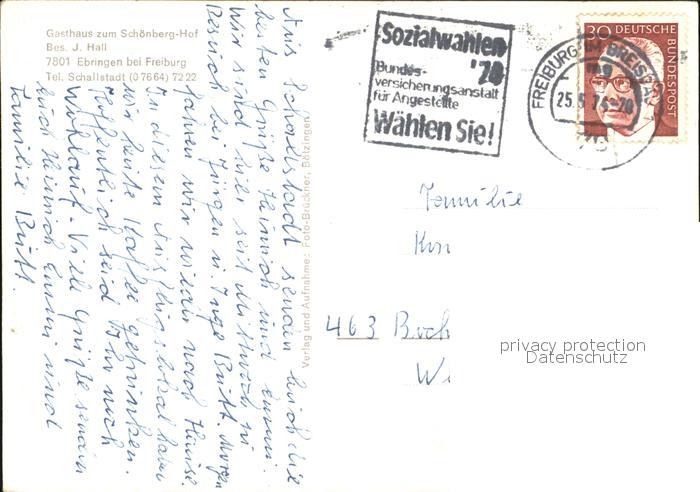 Gasthaus zum Schönberg-Hof
Bes. J. Hall
7801 Ebringen bei Freiburg
Tel. Schallstadt (07664) 7222
Aus Schallstadt senden Euch die
besten Grüße Heinrich und Emmi.
Wir sind hier seit Mittwoch zu
Besuch bei Jürgen u. Inge Bütt. Morgen
fahren wir wieder nach Hause.
In diesem Ausflugslokal haben
wir heute Kaffee getrunken.
Hoffentlich seid Ihr noch
wohlauf. Viele Grüße senden
Euch Heinrich Emmi und
Familie Bütt.
Verlag und Aufnahme: Foto-Brückner, Bötzingen
Sozialwahlen
'74
Bundes-
versicherungsanstalt
für Angestellte
Wählen Sie!
FREIBURG IM BREISGAU
25.5.74
30 DEUTSCHE
BUNDESPOST
Familie
463 Boch
privacy protection
Datenschutz